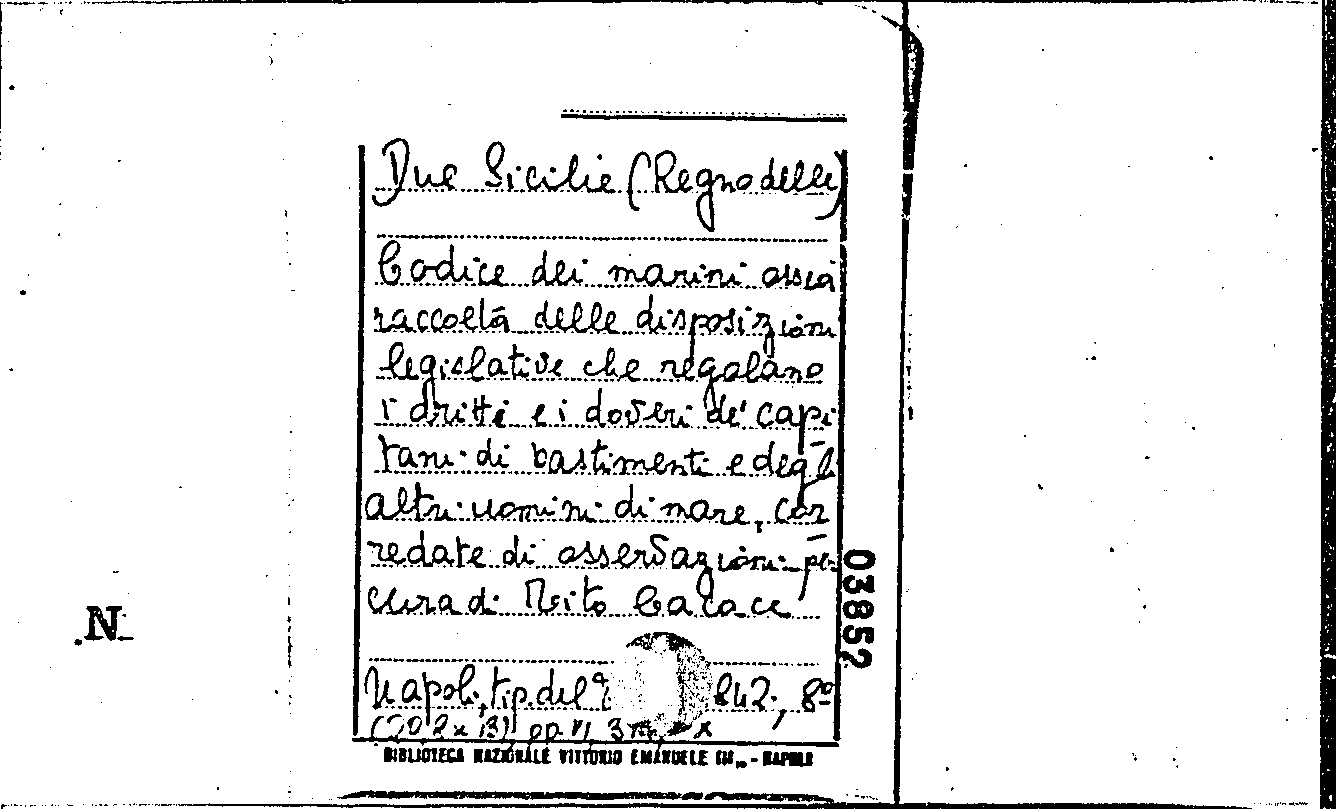 Due Sicilie (Regno delle)
Codice dei marini ossia
raccolta delle disposizioni
legislative che regolano
i dritti e i doveri de' capi
tani di bastimenti e degli
altri uomini di mare, cor
redate di osservazioni per
cura di Cacace
Napoli, tip. del 842, 8º
03852
N
BIBLIOTECA NAZIONALE VITTORIO EMANUELE III - NAPOLI